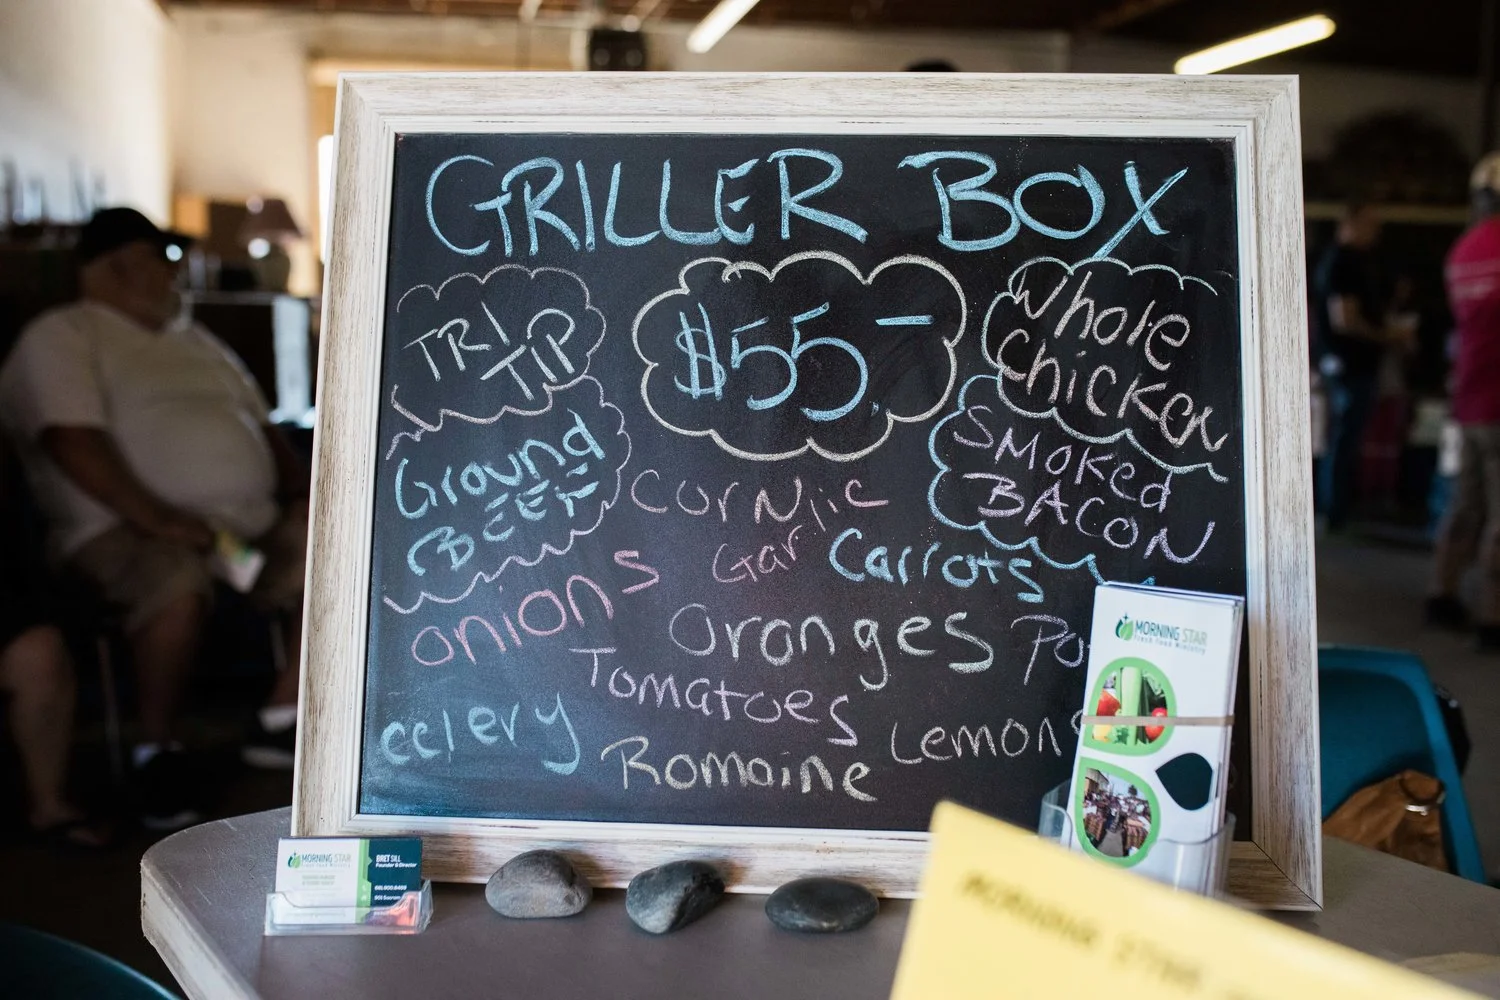 GRILLER BOX
TRI
TIP
$55.-
Whole
Chicken
Ground
BEEF
SMOKED
BACON
Corn
Garlic
Carrots
onions
Oranges
Po
Tomatoes
celery
Romaine
Lemons
MORNING STAR
Fresh Food Ministry
MORNING STAR
BRET SILL
Founder & Director